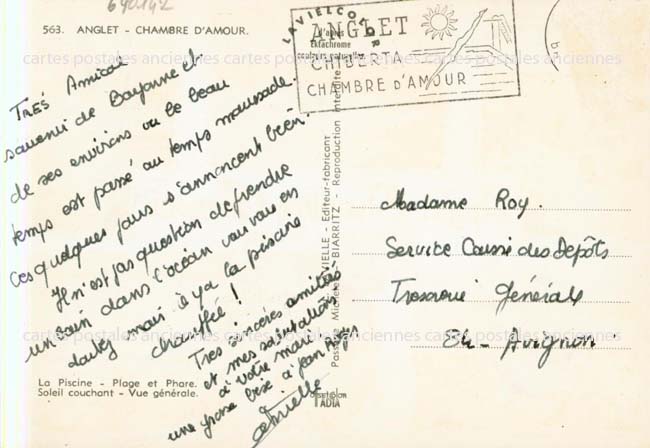 563. ANGLET - CHAMBRE D'AMOUR.
TRÈS Amical
souvenir de Bayonne et
de ses environs ou le beau
temps est passé au temps maussade.
Ces quelques jours s'annoncent bien.
Il n'est pas question de prendre
un bain dans l'océan vous vous en
doutez mais il y a la piscine
chauffée !
Très sincères amitiés
et mes salutations
à votre mari
une grosse bise à Jean
La Piscine - Plage et Phare.
Soleil couchant - Vue générale.
LAVIELLE - Editeur-fabricant
BIARRITZ - Reproduction interdite
d'après
Ektachrome
ANGLET
CHIBERTA
CHAMBRE D'AMOUR
Madame Roy.
Service Caisse des Depôts
Tresorerie Générale
84 - Avignon
cartes postales anciennes cartes postales anciennes cartes postales anciennes